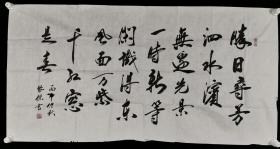 勝日尋芳
泗水濱
無邊光景
一時新等
閑識得東
風面万紫
千紅總
是春
丙申仲秋
書